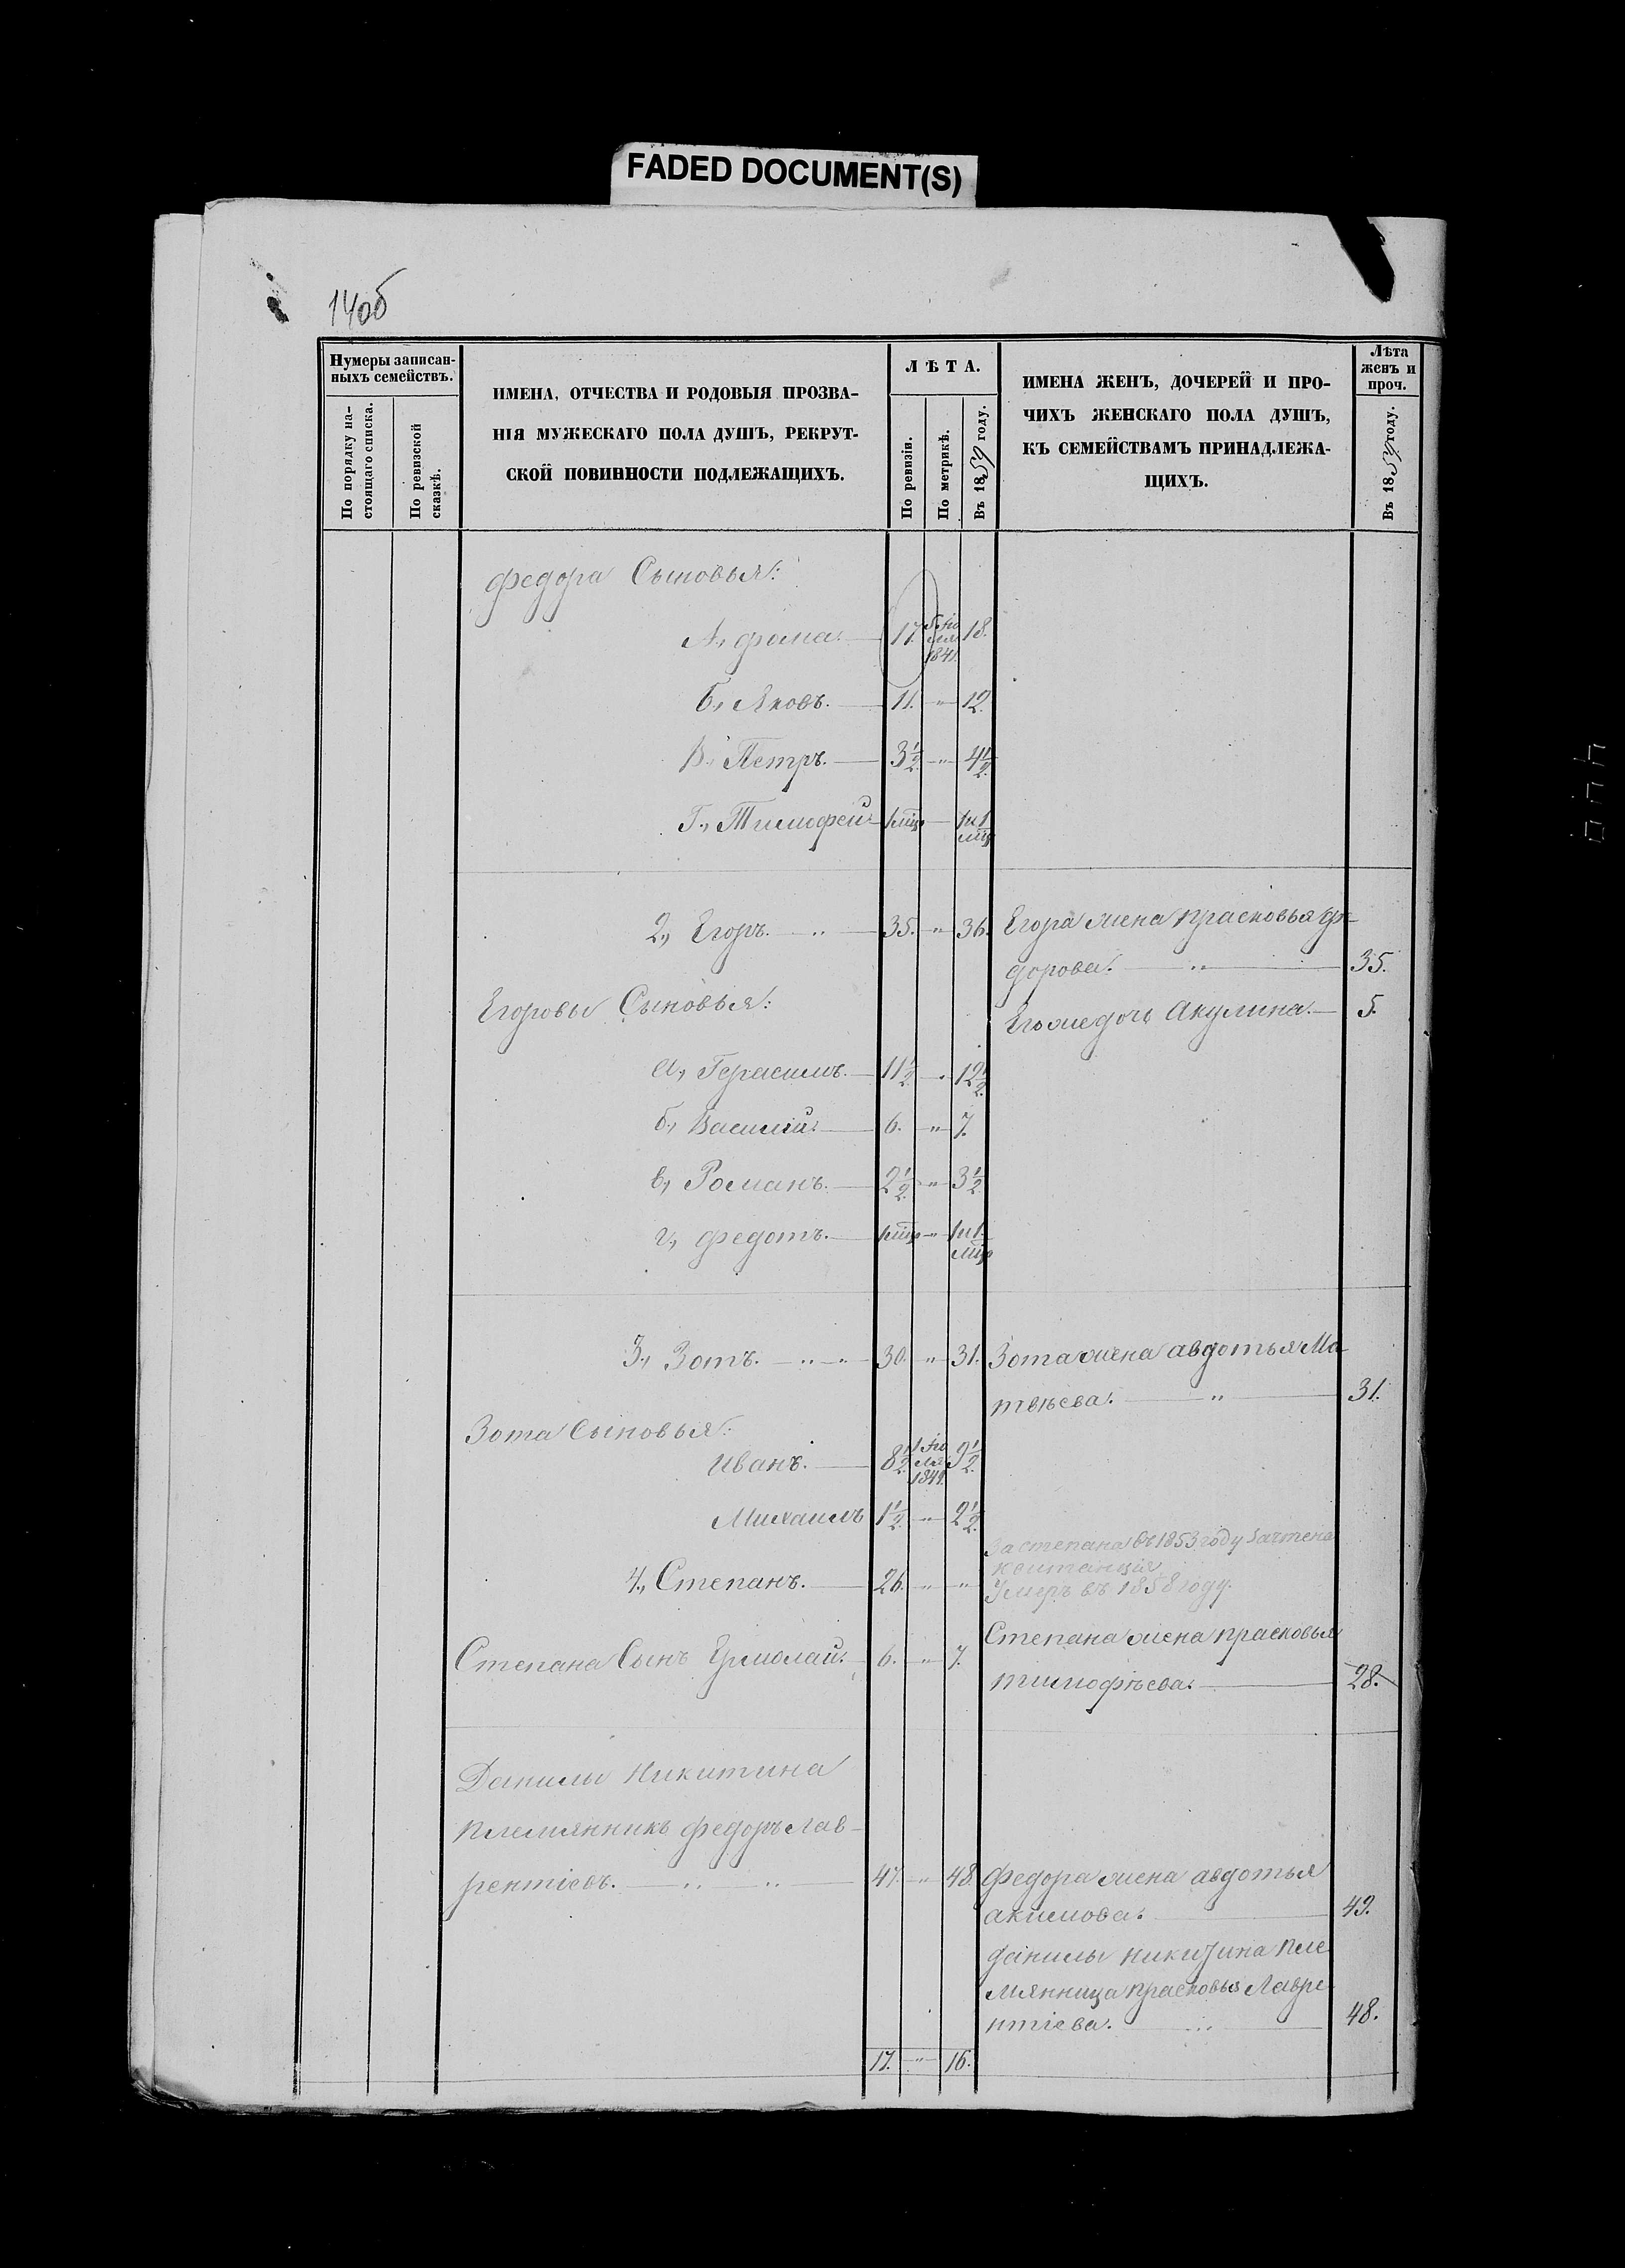 FADED DOCUMENT(S)
14об
Нумеры записан-
ныхъ семействъ.
По порядку на-
стоящаго списка.
По ревизской
сказкѣ.
ИМЕНА, ОТЧЕСТВА И РОДОВЫЯ ПРОЗВА-
НІЯ МУЖЕСКАГО ПОЛА ДУШЪ, РЕКРУТ-
СКОЙ ПОВИННОСТИ ПОДЛЕЖАЩИХЪ.
ЛѢТА.
По ревизіи.
По метрикѣ.
Въ 1859 году.
ИМЕНА ЖЕНЪ, ДОЧЕРЕЙ И ПРО-
ЧИХЪ ЖЕНСКАГО ПОЛА ДУШЪ,
КЪ СЕМЕЙСТВАМЪ ПРИНАДЛЕЖА-
ЩИХЪ.
Лѣта
женъ и
проч.
Въ 1859 году.
Федора Сыновья:
А, Фома. 17. 1841. 18.
Б, Яковъ. 11. " 12.
В, Петръ. 3½ " 4½
Г, Тимофей 1мц 1 и 1 мц
2, Егоръ. " 35. " 36. Егора жена Прасковья Фе-
дорова. " 35.
Егоровы Сыновья: Его же дочь Акулина. 5.
а, Герасимъ. 11½ " 12½
б, Василій. 6. " 7.
в, Романъ. 2½ " 3½
г, Федотъ. 1мц " 1 и 1 мц
3, Зотъ. " " 30. " 31. Зота жена авдотья Ма-
твѣева. " 31.
Зота Сыновья:
Иванъ. 8½ 1849. 9½
Михаилъ 1½ " 2½
За степана въ 1853 году зачтена
квитанція
4, Степанъ. 26. " " Умеръ въ 1858 году.
Степана жена прасковья
Степана Сынъ Ермолай. 6. " 7.
тимофѣева. 28.
Данилы Никитина
племянникъ Федоръ Лав-
рентіевъ. " " 47. " 48. Федора жена авдотья
акимова. 49.
данилы никитина пле
мянница прасковья Лавре-
нтіева. " 48.
17. " 16.